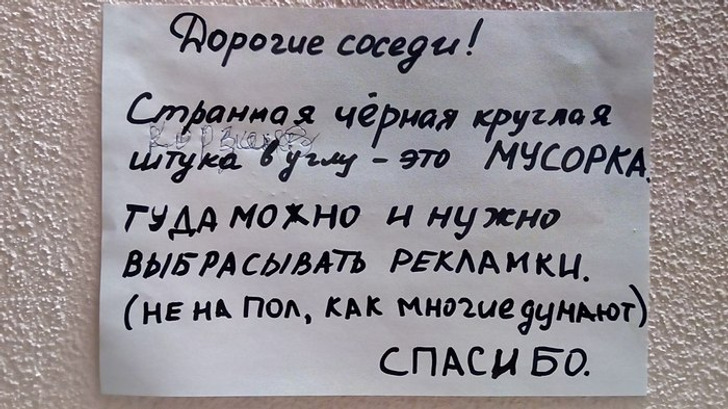 Дорогие соседи!
Странная чёрная круглая
штука в углу - это МУСОРКА.
ТУДА МОЖНО И НУЖНО
ВЫБРАСЫВАТЬ РЕКЛАМКИ.
(НЕ НА ПОЛ, КАК МНОГИЕ ДУМАЮТ)
СПАСИБО.